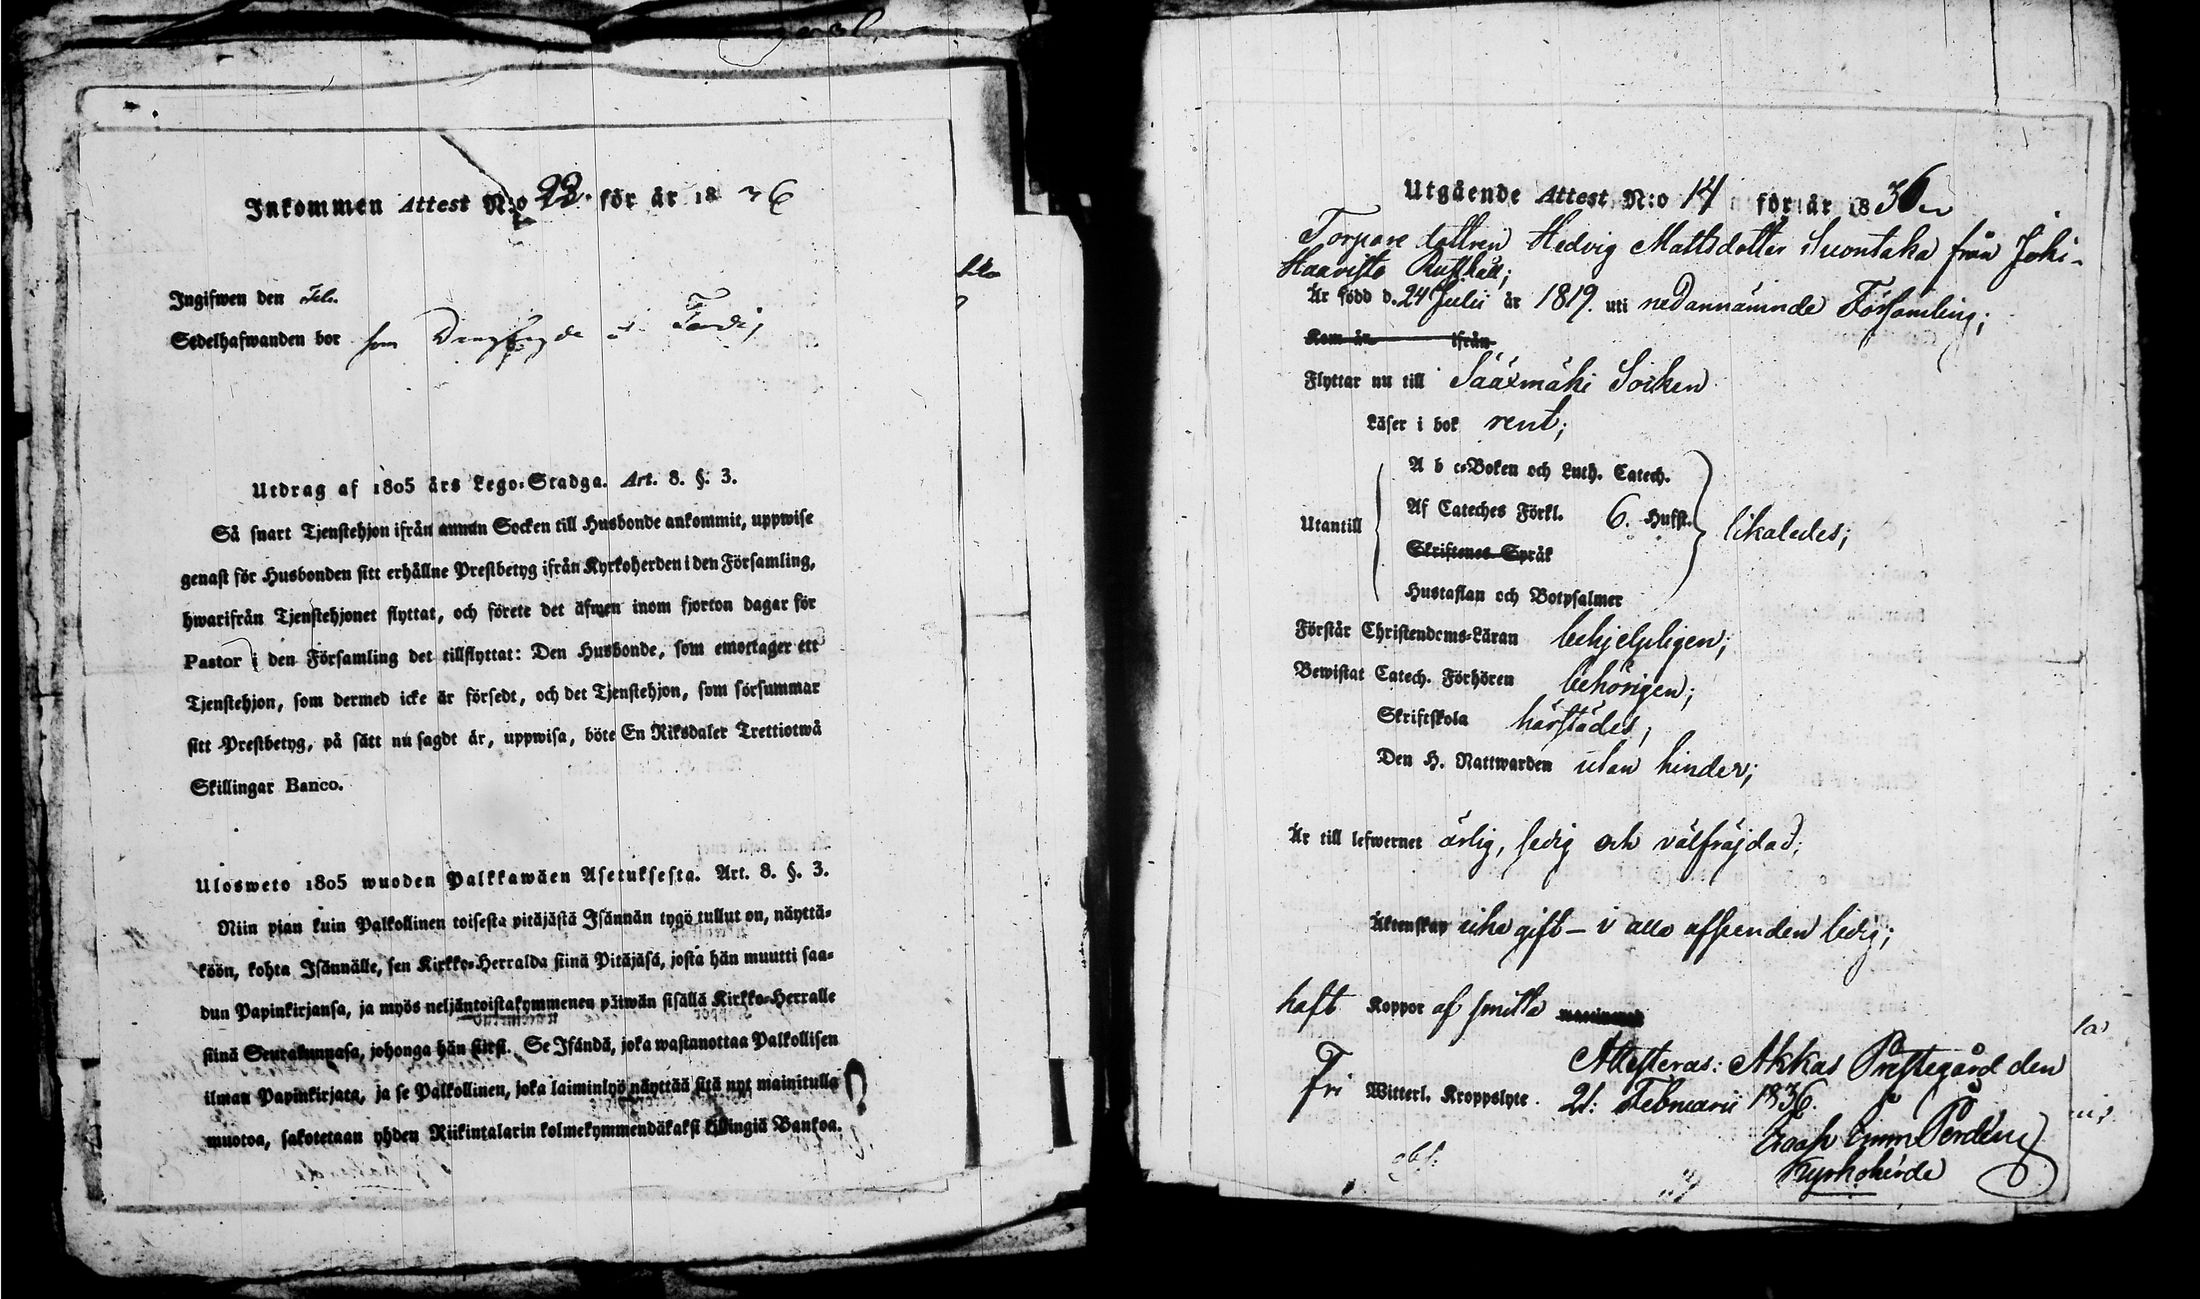 Inkommen Attest N:o 23. för år 1836
Ingifwen den Feb.
Sedelhafwanden bor som
Utdrag af 1805 års Lego-Stadga. Art. 8. §. 3.
Så snart Tjenstehjon ifrån annan Socken till Husbonde ankommit, uppwise
genast för Husbonden sitt erhållne Prestbetyg ifrån Kyrkoherden i den Församling,
hwarifrån Tjenstehjonet flyttat, och förete det äfwen inom fjorton dagar för
Pastor i den Församling det tillflyttat: Den Husbonde, som emottager ett
Tjenstehjon, som dermed icke är försedt, och det Tjenstehjon, som försummar
sitt Prestbetyg, på sätt nu sagdt är, uppwisa, böte En Riksdaler Trettiotwå
Skillingar Banco.
Ulosweto 1805 wuoden Palkkawäen Asetuksesta. Art. 8. §. 3.
Niin pian kuin Palkollinen toisesta pitäjästä Isännän tygö tullut on, näyttä-
köön, kohta Isännälle, sen Kirkko-Herralda siinä Pitäjäsä, josta hän muutti saa-
dun Papinkirjansa, ja myös neljäntoistakymmenen päiwän sisällä Kirkko-Herralle
siinä Seurakunnasa, johonga hän siirsi. Se Isändä, joka wastanottaa Palkollisen
ilman Papinkirjata, ja se Palkollinen, joka laiminlyö näyttää sitä nyt mainitulla
muotoa, sakotetaan yhden Riikintalarin kolmekymmendäkaksi killingiä Bankoa.
Utgående Attest N:o 14 för år 1836
Torpare dottren Hedvig Mattsdotter Suontaka från Joki-
Haavisto Rusthåll;
Är född d. 24 Julii år 1819. uti nedannämnde Församling;
Kom år ifrån
Flyttar nu till Sääxmäki Socken
Läser i bok rent;
A b c-Boken och Luth. Catech.
Utantill Af Cateches Förkl. 6. Hufst. likaledes;
Skriftenes Språk
Hustaflan och Botpsalmer
Förstår Christendoms-Läran behjelpligen;
Bewistat Catech. Förhören behörigen;
Skriftskola härstädes,
Den H. Nattwarden utan hinder;
Är till lefwernet ärlig, sedig och välfräjdad;
Äktenskap icke gift – i alla afseenden ledig;
haft Koppor af smitta
Attesteras: Akkas Prestegård den
Fri Witterl. Kroppslyte. 21: Februarii 1836.
Kyrkoherde